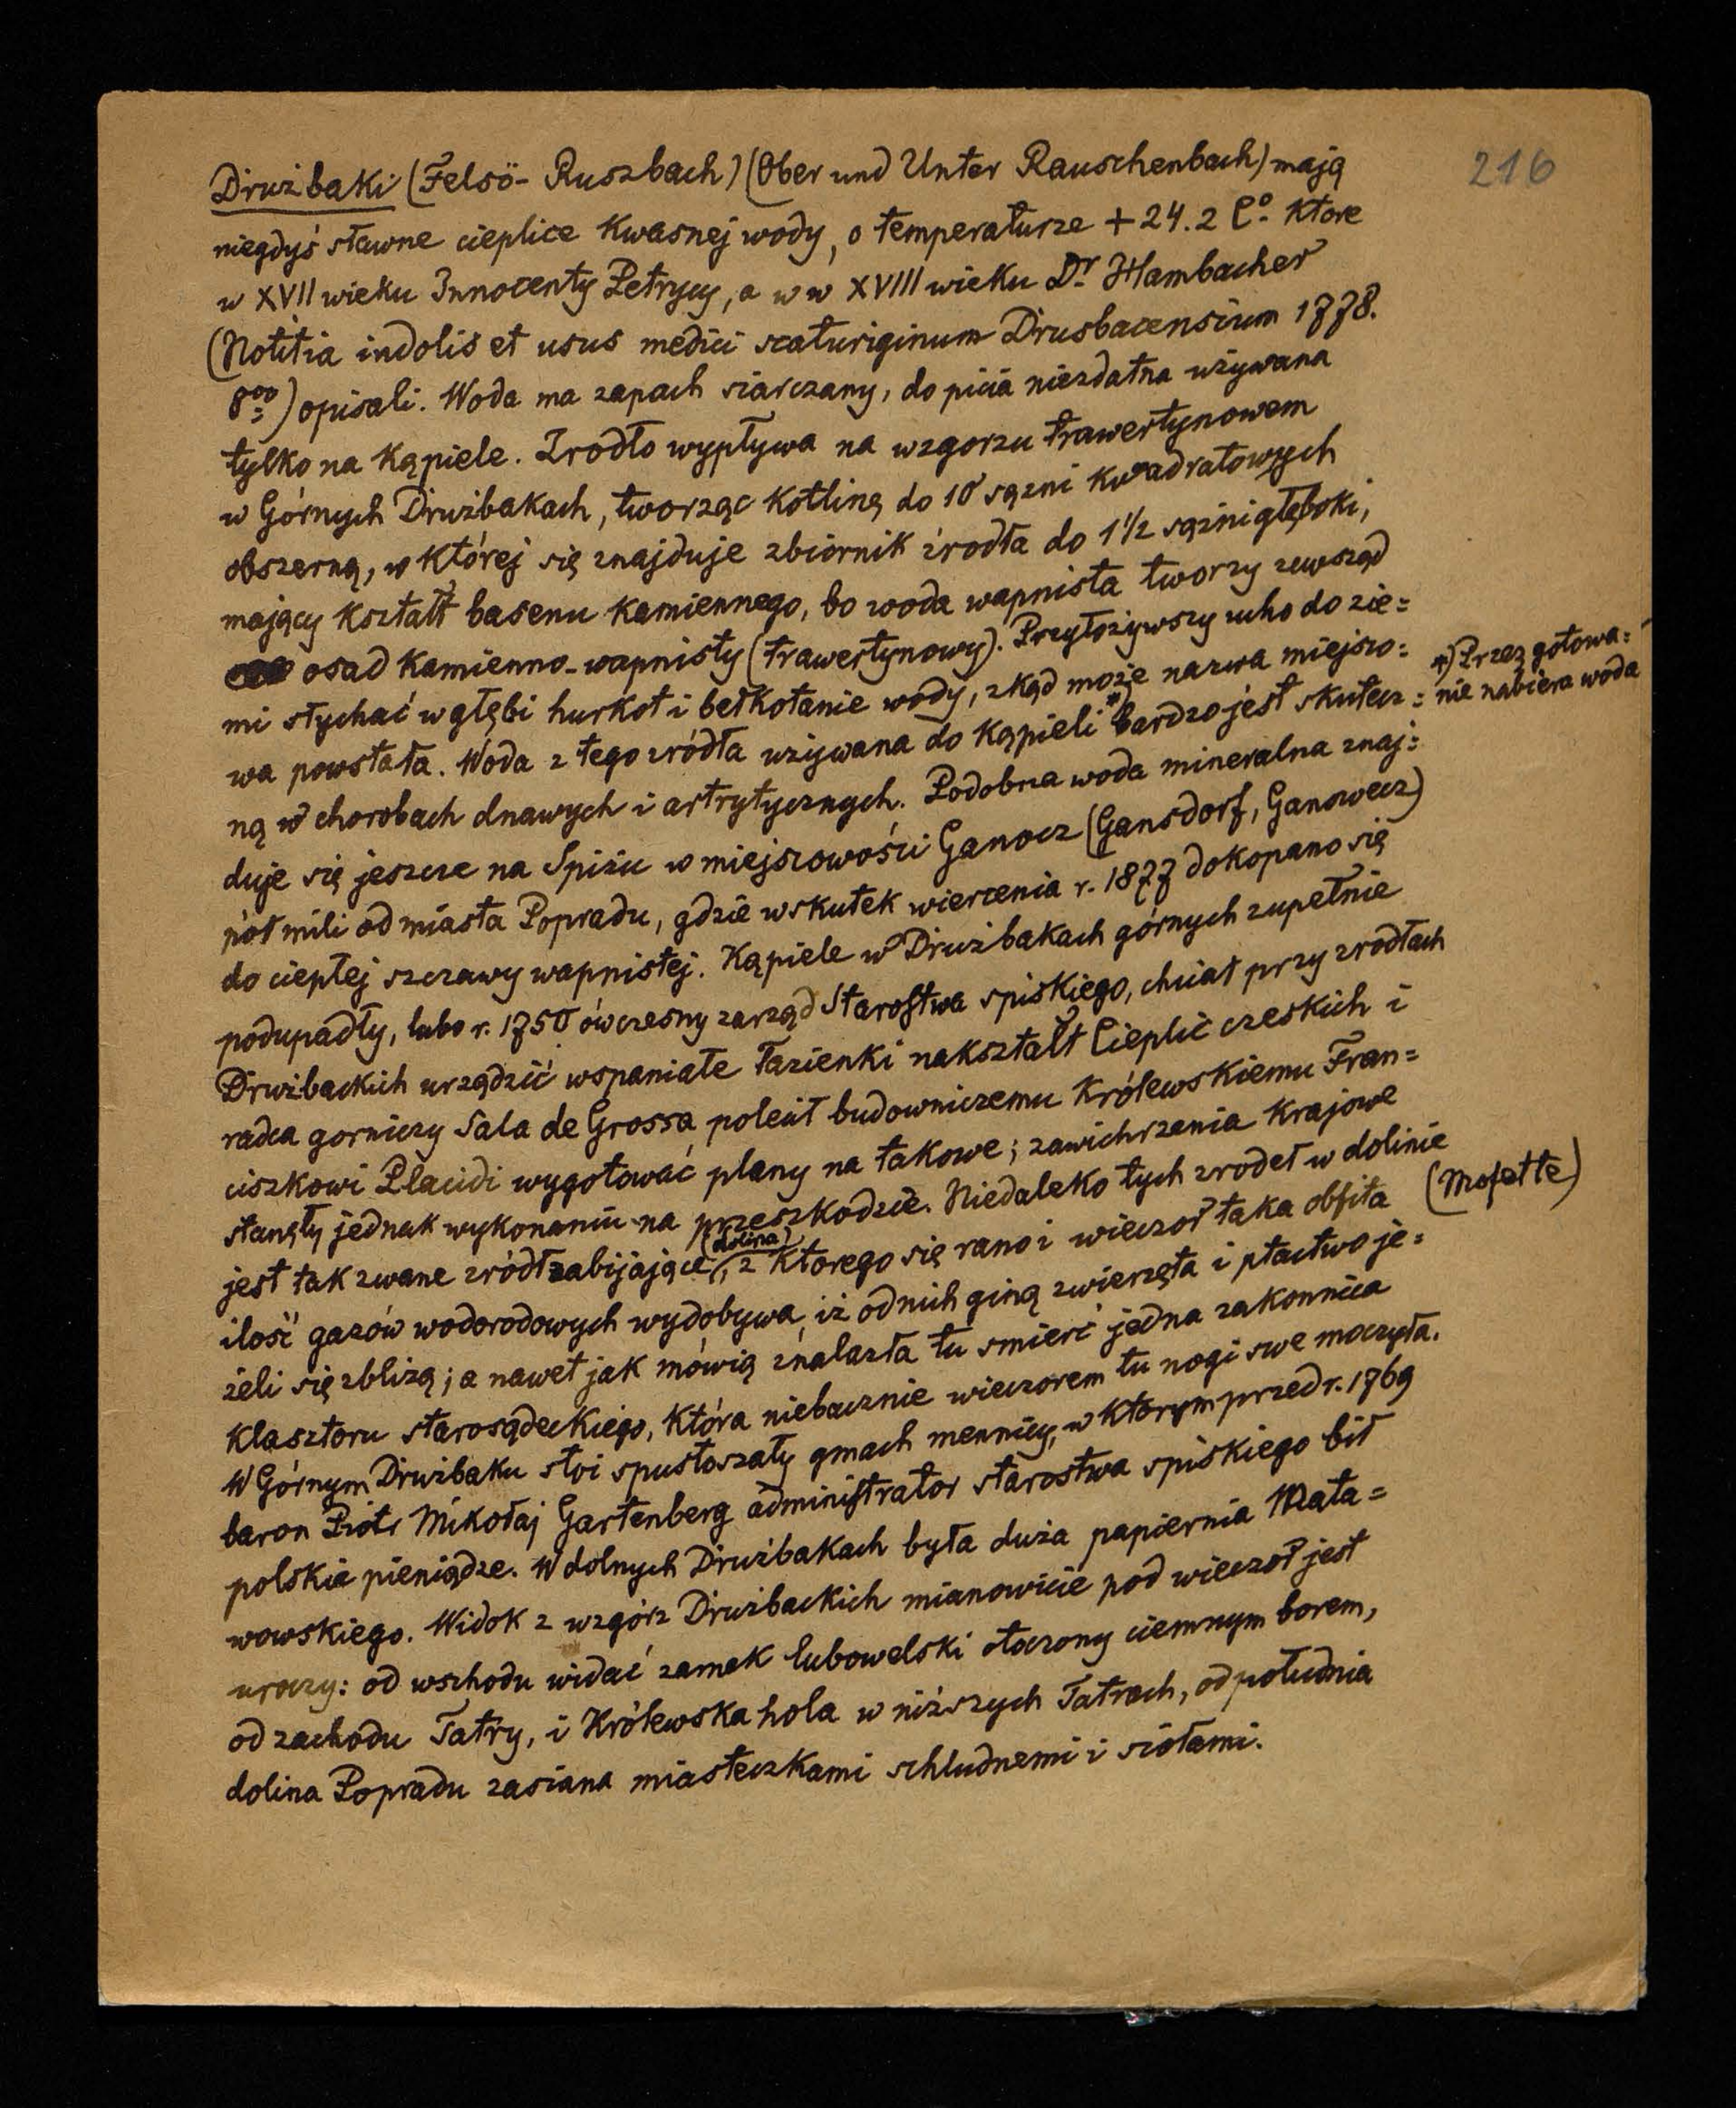 216
Drużbaki (Felsö-Ruszbach) (Ober und Unter Rauschenbach) mają
niegdyś sławne cieplice kwasnej wody, o temperaturze +24.2 C°. ktore
w XVII wieku Innocenty Petrycy, a w w XVIII wieku Dr Hambacher
(Notitia indolis et usus medici scaturiginum Drusbacensium 1778.
8vo) opisali. Woda ma zapach siarczany, do picia niezdatna używana
tylko na kąpiele. Zrodło wypływa na wzgorzu trawertynowem
w Górnych Drużbakach, tworząc kotlinę do 10 sązni kwadratowych
obszerną, w której się znajduje zbiornik źrodła do 1 1/2 sążni głęboki,
mający kształt basenu kamiennego, bo woda wapnista tworzy zewsząd
osad kamienno-wapnisty (trawertynowy). Przyłożywszy ucho do zie=
mi słychać w głębi hurkot i bełkotanie wody, zkąd może nazwa miejsco=
wa powstała. Woda z tego zródła używana do kąpieli *) bardzo jest skutecz=
*) Przez gotowa=
nie nabiera woda
ną w chorobach dnawych i artrytycznych. Podobna woda mineralna znaj=
duje się jeszcze na Spiżu w miejscowości Ganocz (Gansdorf, Ganowecz)
pół mili od miasta Popradu, gdzie wskutek wiercenia r. 1877 dokopano się
do ciepłej szczawy wapnistej. Kąpiele w Drużbakach górnych zupełnie
podupadły, lubo r. 1750 ówczesny zarząd Starostwa spiskiego, chciał przy zrodłach
Drużbackich urządzić wspaniałe łazienki nakształt Cieplic czeskich i
radca gorniczy Sala de Grossa polecił budowniczemu Królewskiemu Fran=
ciszkowi Placidi wygotować plany na takowe; zawichrzenia krajowe
stanęły jednak wykonaniu na przeszkodzie. Niedaleko tych zrodeł w dolinie
jest tak zwane zródł zabijające (dolina), z ktorego się rano i wieczor taka obfita (Mofette)
ilość gazów wodorodowych wydobywa, iż od nich giną zwierzęta i ptactwo je=
żeli się zbliżą; a nawet jak mówią znalazła tu smierć jedna zakonnica
klasztoru starosądeckiego, która niebacznie wieczorem tu nogi swe moczyła.
W Górnym Drużbaku stoi spustoszały gmach mennicy, w ktorym przed r. 1769
baron Piotr Mikołaj Gartenberg administrator starostwa spiskiego bił
polskie pieniądze. W dolnych Drużbakach była duża papiernia Mata=
wowskiego. Widok z wzgórz Drużbackich mianowicie pod wieczor jest
uroczy: od wschodu widać zamek lubowelski otoczony ciemnym borem,
od zachodu Tatry, i Królewska hola w niższych Tatrach, od południa
dolina Popradu zasiana miasteczkami schludnemi i siołami.